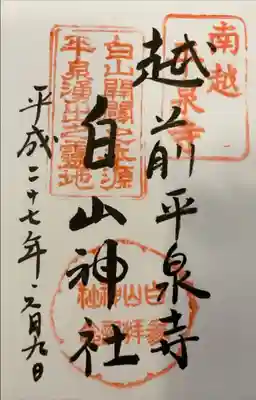 南越
平泉寺
越前平泉寺
白山開闢之本源
平泉湧出之霊地
白山神社
平成二十七年